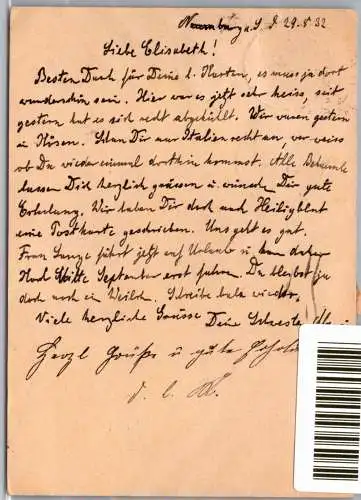 Naumburg a. S. d 29.8.32
Liebe Elisabeth!
Besten Dank für Deine l. Karten, es muss ja dort
wunderschön sein. Hier war es jetzt sehr heiss, seit
gestern hat es sich recht abgekühlt. Wir waren gestern
in Kösen. Schau Dir nur Italien recht an, wer weiss
ob Du wieder einmal dorthin kommst. Alle Bekannte
lassen Dich herzlich grüssen u. wünschen Dir gute
Erholung. Wir haben Dir doch nach Heiligblut
eine Postkarte geschrieben. Uns geht es gut.
Frau fährt jetzt auf Urlaub u. kann daher
Mitte September erst fahren. Du bleibst ja
doch noch ein Weilch. Schreibe bald wieder.
Viele herzliche Grüsse Deine Schwester
Herzl Grüße u gute
d. l. K.